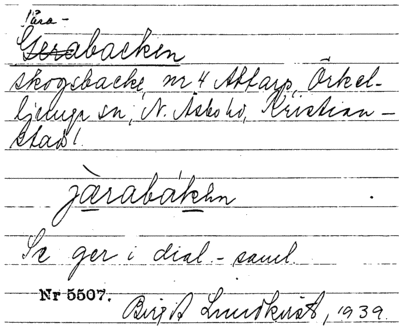 Pära-
Gerabacken
skogsbacke, nr 4 Attarp, Örkel-
ljunga sn, N. Åsbo hd, Kristian-
stad l.
jàrabákkn
Se ger i dial-saml.
Nr 5507.
Birgit Lundkvist, 1939.